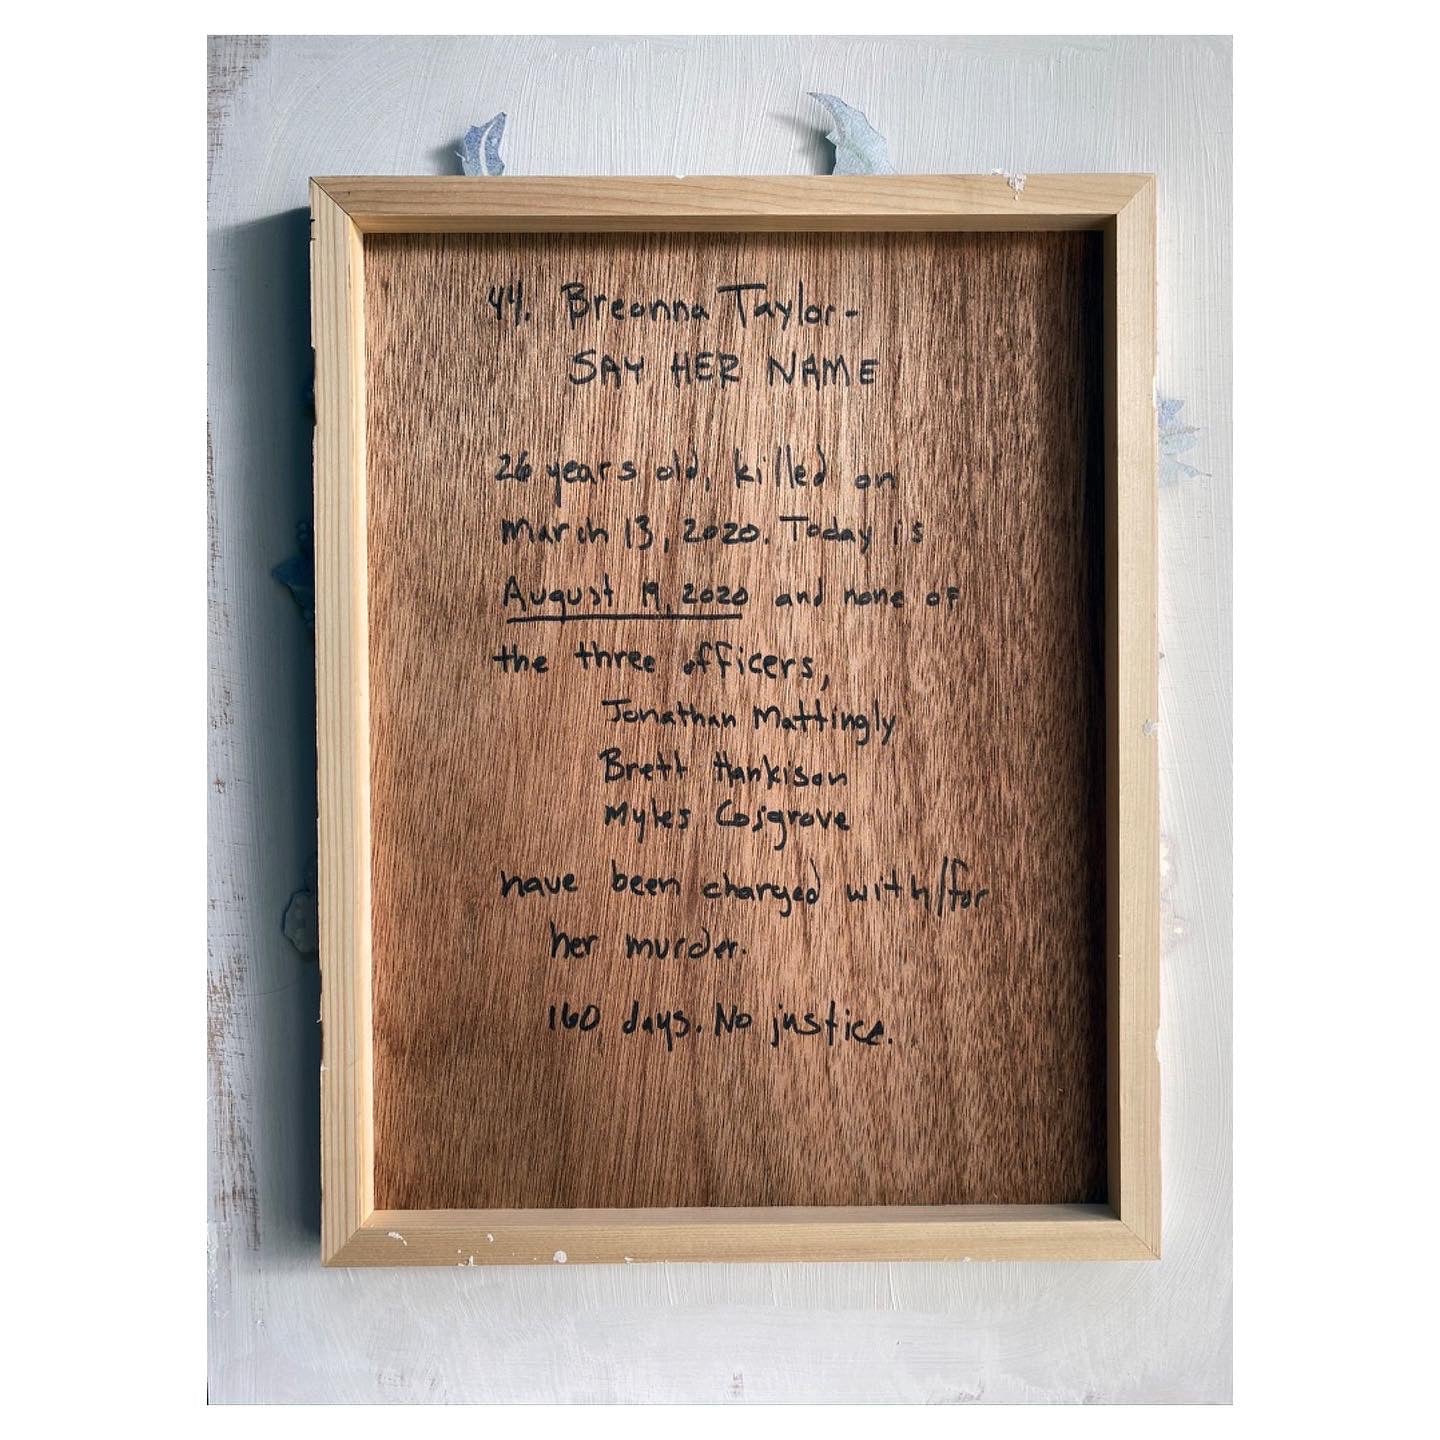 44. Breonna Taylor-
SAY HER NAME
26 years old, killed on
March 13, 2020. Today is
August 19, 2020 and none of
the three officers,
Jonathan Mattingly
Brett Hankison
Myles Cosgrove
have been charged with/for
her murder.
160 days. No justice.